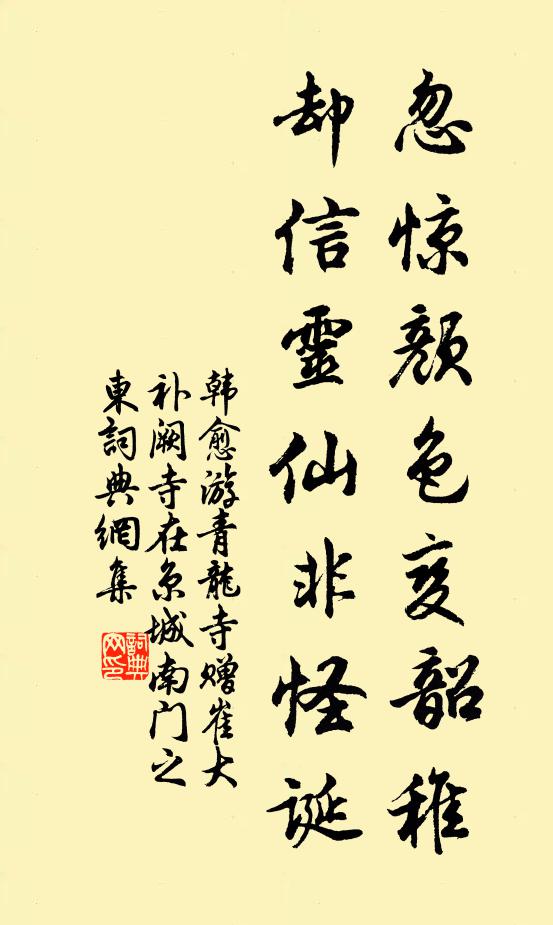 忽惊颜色变韶稚
却信靈仙非怪诞
韩愈游青龍寺赠崔大
补阙寺在京城南门之
東詞典網集
詞典
网印